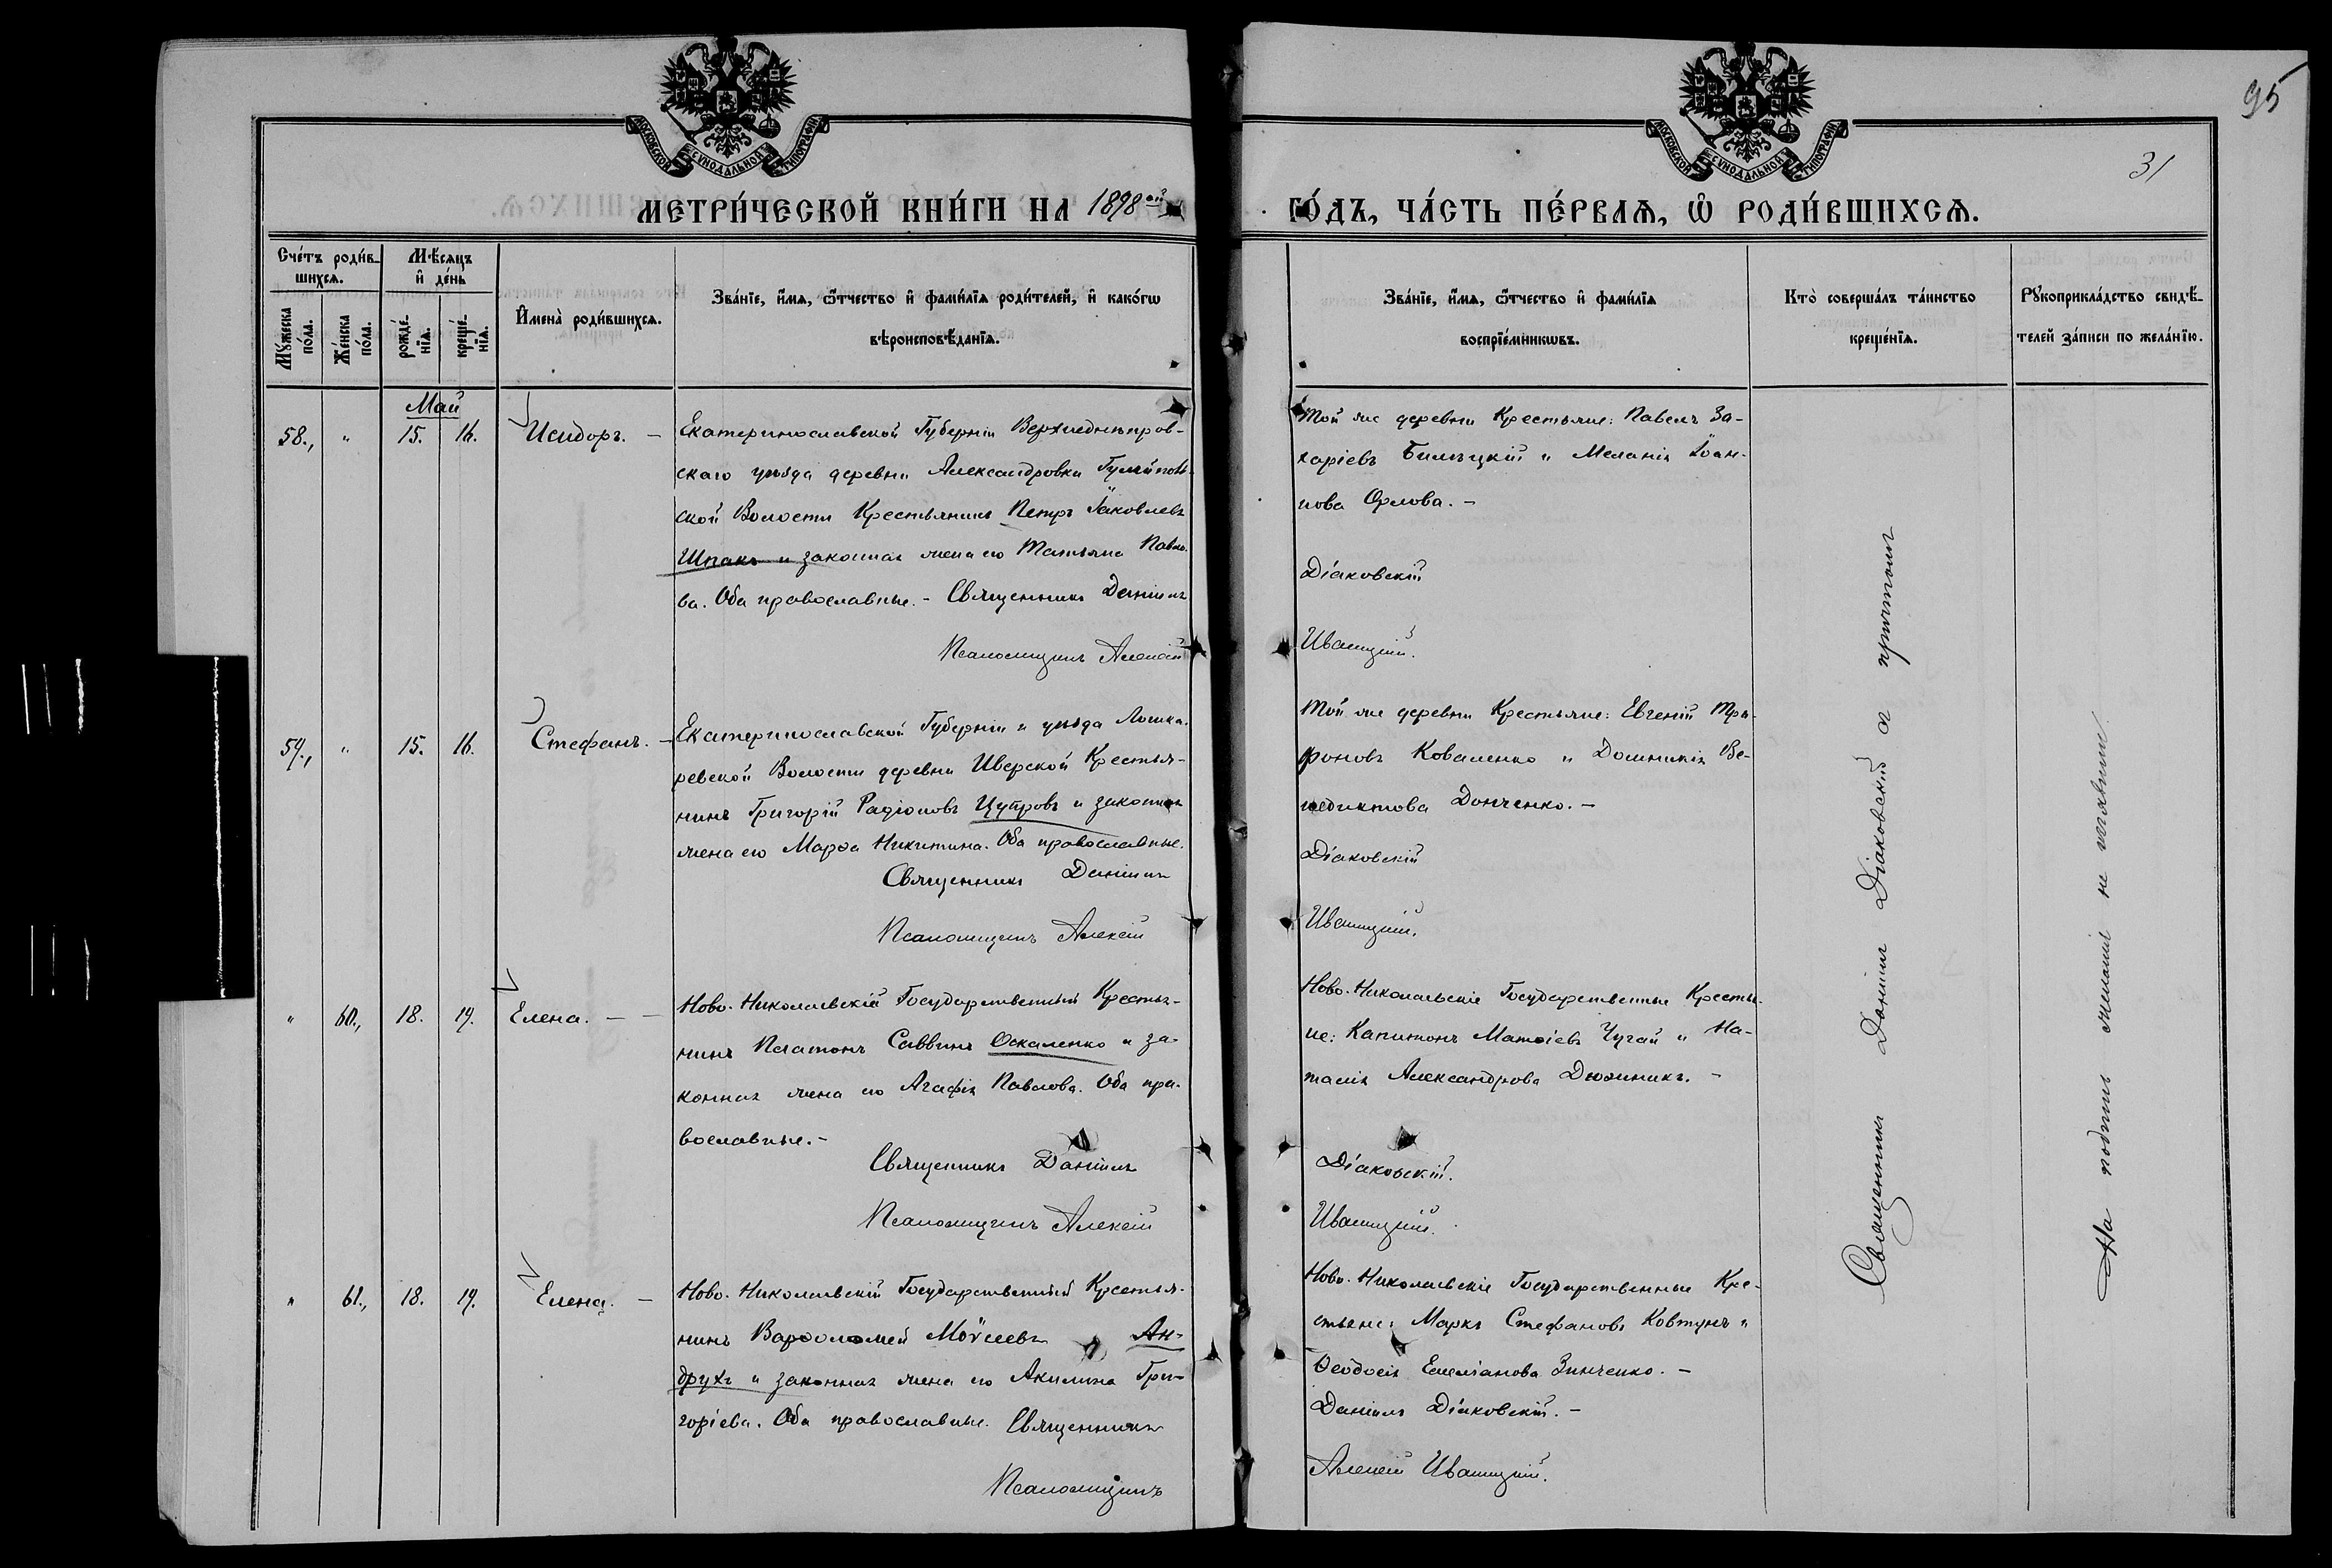 95
31
МОСКОВСКОЙ СѴНОДАЛЬНОЙ ТИПОГРАФІИ
МОСКОВСКОЙ СѴНОДАЛЬНОЙ ТИПОГРАФІИ
МЕТРИ́ЧЕСКОЙ КНИ́ГИ НА 1898 ой
ГО́ДЪ, ЧА́СТЬ ПЕ́РВАѦ, Ѽ РОДИ́ВШИХСѦ.
Сче́тъ роди́в-
шихсѧ.
Мѣ́сѧцъ
и҆ де́нь
Мꙋ́жеска
по́ла.
Же́нска
по́ла.
рожде́-
нїѧ.
креще́-
нїѧ.
И҆мена̀ роди́вшихсѧ.
Зва́нїе, и҆́мѧ, ѻ҆́тчество и҆ фами́лїѧ роди́телей, и҆ како́гѡ
вѣроисповѣ́данїѧ.
Зва́нїе, и҆́мѧ, ѻ҆́тчество и҆ фами́лїѧ
воспрїе́мникѡвъ.
Кто̀ соверша́лъ та́инство
креще́нїѧ.
Рꙋкоприкла́дство свидѣ́-
телей за́писи по жела́нїю.
Май
58., " 15. 16. Исидоръ. —
Екатеринославской Губерніи Верхнеднѣпров-
скаго уѣзда деревни Александровки
ской Волости Крестьянинъ Петръ Іаковлевъ
Шпакъ и законная жена его Татьяна Павло-
ва. Оба православные. – Священникъ Даніилъ
Псаломщикъ Алексій
Той же деревни Крестьяне: Павелъ За-
харіевъ Билецкій и Меланія Іоан-
нова Орлова. –
Діаковскій
Ивашкій.
59., " 15. 16. Стефанъ. –
Екатеринославской Губерніи и уѣзда Лошка-
ревской Волости деревни Иверской Крестья-
нинъ Григорій Радіоновъ Цупровъ и законная
жена его Марѳа Никитина. Оба православные.
Священникъ Даніилъ
Псаломщикъ Алексій
Той же деревни Крестьяне: Евгеній Три-
фоновъ Коваленко и Домникія Ве-
недиктова Донченко. –
Діаковскій
" 60., 18. 19. Елена. — —
Ново-Николаевскій Государственный Крестья-
нинъ Платонъ Саввинъ Оскаленко и за-
конная жена его Агафія Павлова. Оба пра-
вославные. –
Священникъ Даніилъ
Псаломщикъ Алексій
Ново-Николаевскіе Государственные Крестья-
не: Капитонъ Матѳіевъ Чугай и На-
талія Александрова Дюжникъ. –
Діаковскій.
" 61., 18. 19. Елена. —
Ново-Николаевскій Государственный Крестья-
нинъ Варѳоломей Моѵсеевъ Ан-
друхъ и законная жена его Акилина Гри-
горіева. Оба православные. Священникъ
Псаломщикъ
Ново-Николаевскіе Государственные Кре-
стьяне: Маркъ Стефановъ Ковтунъ и
Ѳеодосія Емеліанова Зинченко. –
Даніилъ Діаковскій. –
Алексій
Священникъ Даніилъ Діаковскій съ причтомъ
На подпись желанія не изъявили